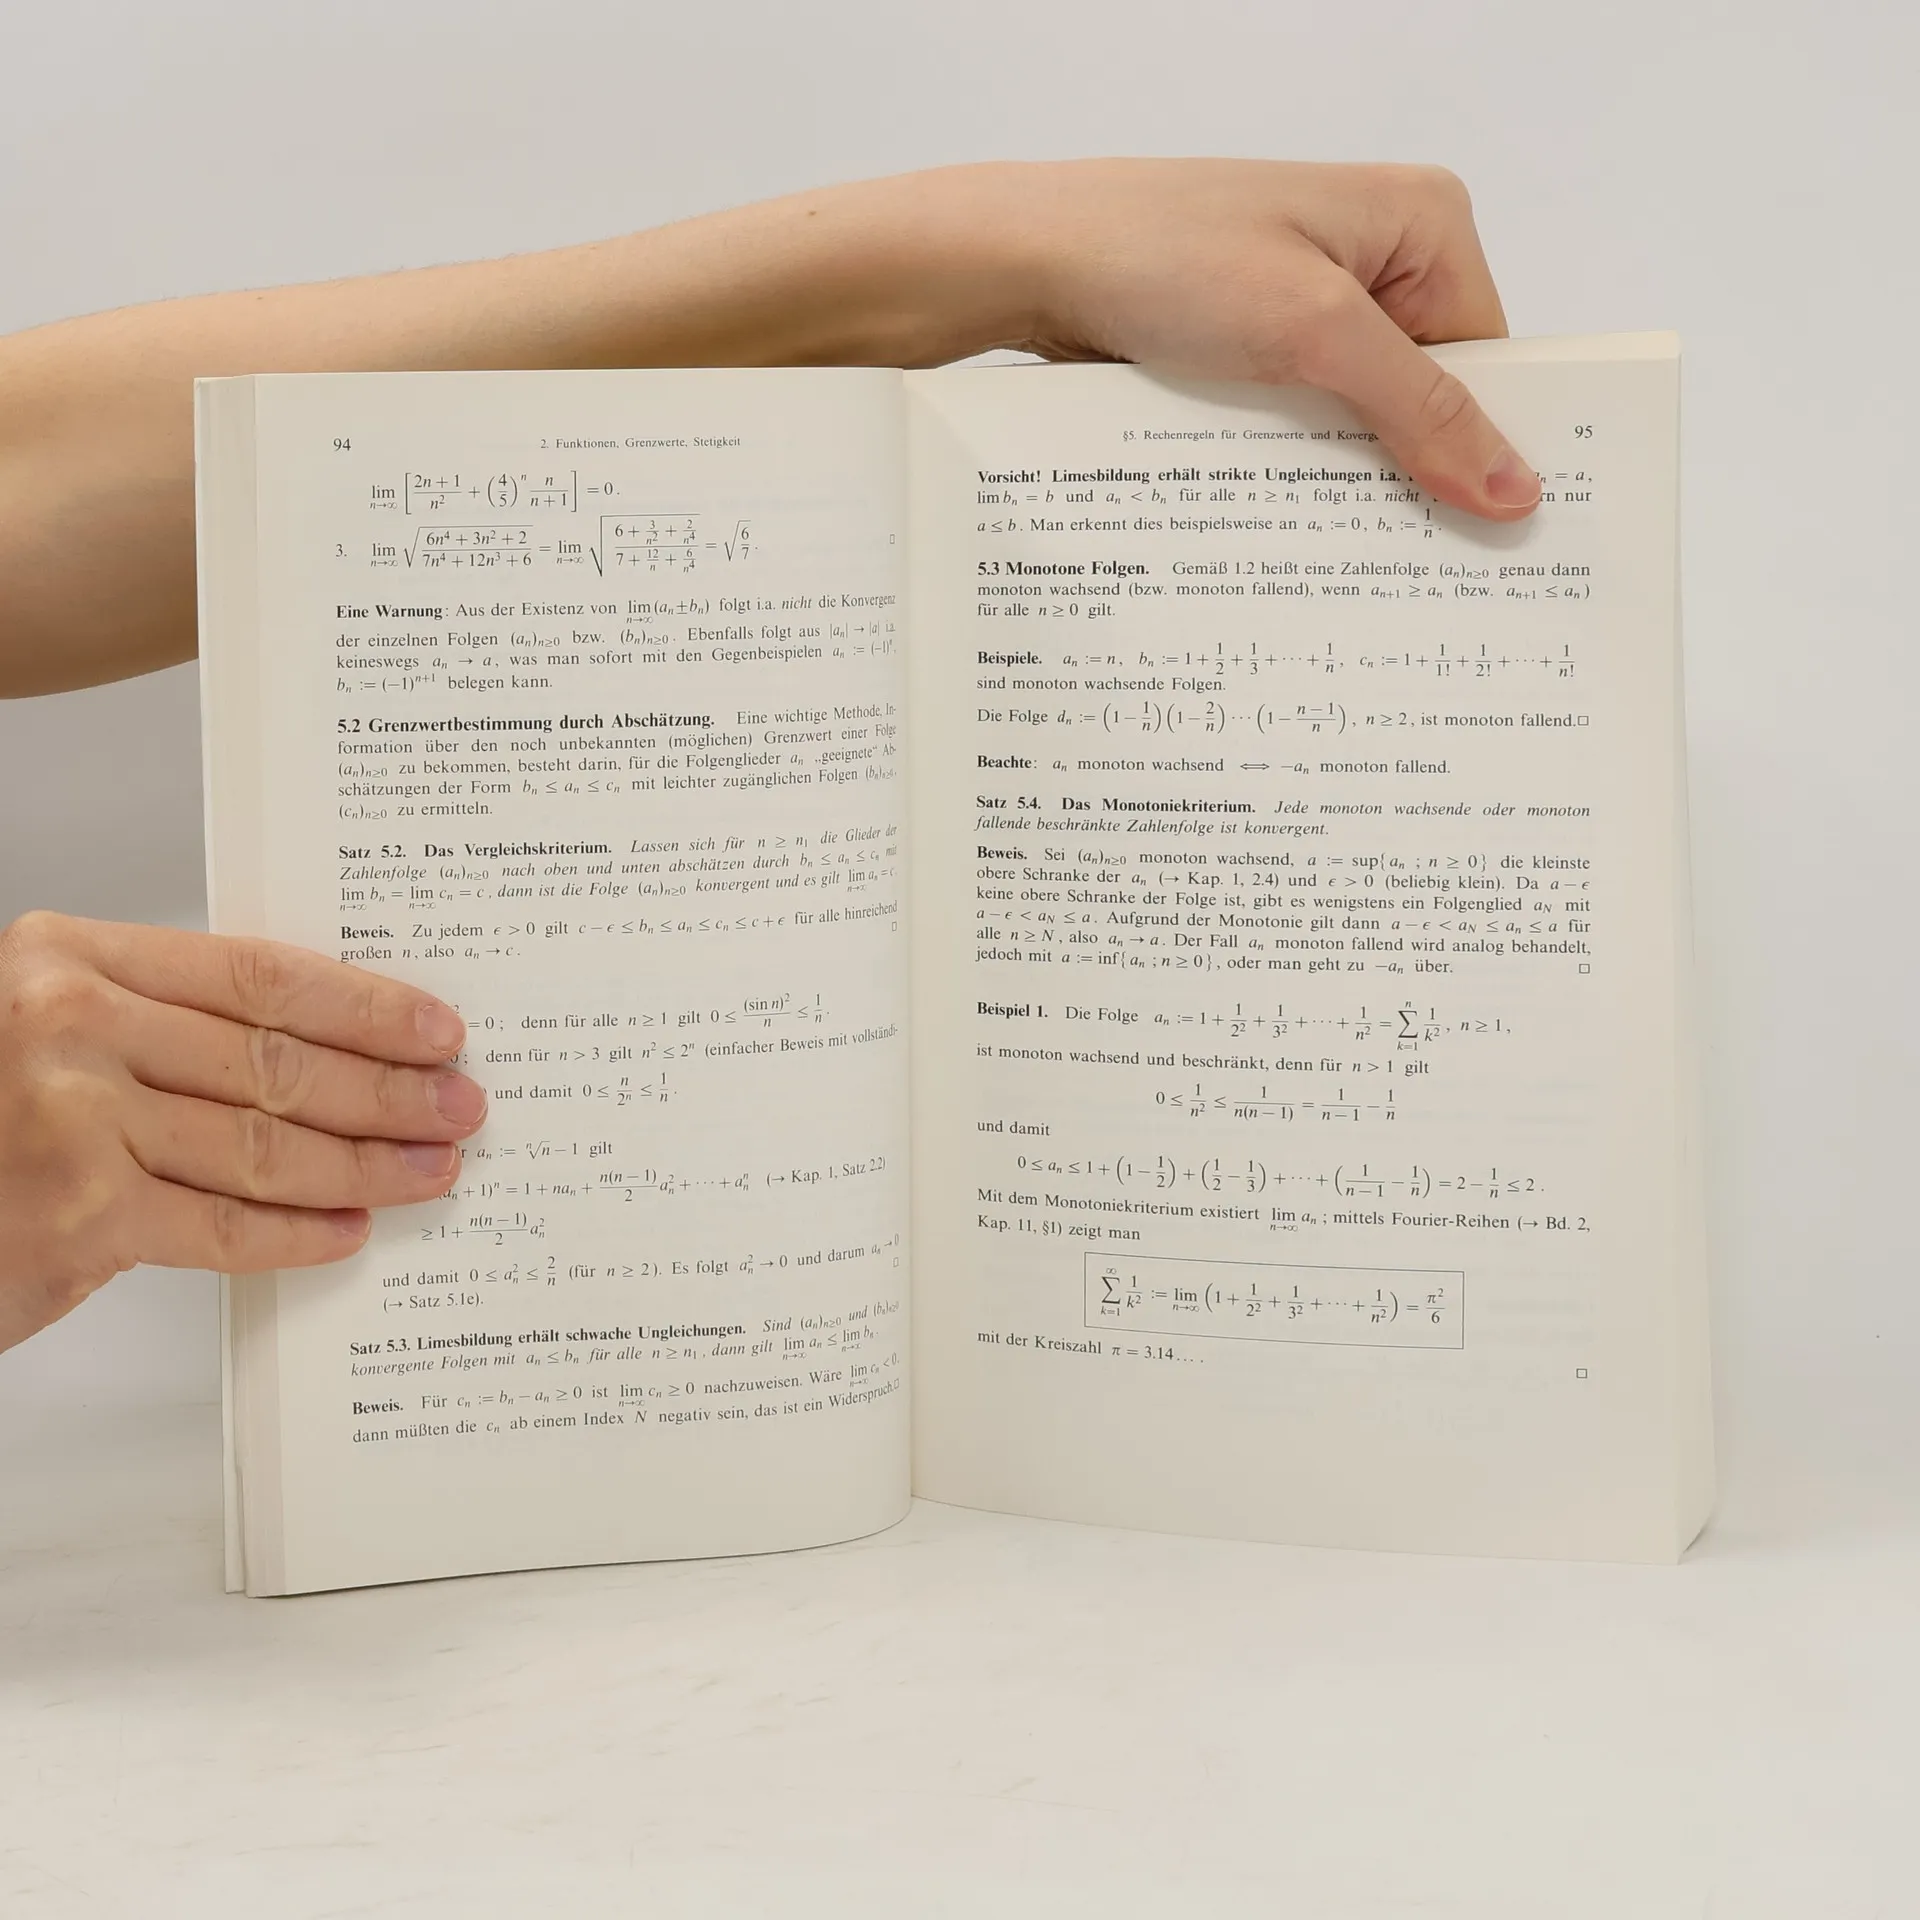 94
2. Funktionen, Grenzwerte, Stetigkeit
lim n→∞ [ (2n+1)/n² + (4/5)ⁿ n/(n+1) ] = 0.
3. lim n→∞ √( (6n⁴ + 3n² + 2)/(7n⁴ + 12n³ + 6) ) = lim n→∞ √( (6 + 3/n² + 2/n⁴)/(7 + 12/n + 6/n⁴) ) = √(6/7). □
Eine Warnung: Aus der Existenz von lim n→∞ (aₙ±bₙ) folgt i.a. nicht die Konvergenz
der einzelnen Folgen (aₙ)n≥0 bzw. (bₙ)n≥0. Ebenfalls folgt aus |aₙ| → |a| i.a.
keineswegs aₙ → a, was man sofort mit den Gegenbeispielen aₙ := (−1)ⁿ,
bₙ := (−1)ⁿ⁺¹ belegen kann.
5.2 Grenzwertbestimmung durch Abschätzung. Eine wichtige Methode, In-
formation über den noch unbekannten (möglichen) Grenzwert einer Folge
(aₙ)n≥0 zu bekommen, besteht darin, für die Folgenglieder aₙ „geeignete“ Ab-
schätzungen der Form bₙ ≤ aₙ ≤ cₙ mit leichter zugänglichen Folgen (bₙ)n≥0,
(cₙ)n≥0 zu ermitteln.
Satz 5.2. Das Vergleichskriterium. Lassen sich für n ≥ n₁ die Glieder der
Zahlenfolge (aₙ)n≥0 nach oben und unten abschätzen durch bₙ ≤ aₙ ≤ cₙ mit
lim n→∞ bₙ = lim n→∞ cₙ = c, dann ist die Folge (aₙ)n≥0 konvergent und es gilt lim n→∞ aₙ = c.
Beweis. Zu jedem ϵ > 0 gilt c − ϵ ≤ bₙ ≤ aₙ ≤ cₙ ≤ c + ϵ für alle hinreichend
großen n, also aₙ → c. □
= 0; denn für alle n ≥ 1 gilt 0 ≤ (sin n)²/n ≤ 1/n.
; denn für n > 3 gilt n² ≤ 2ⁿ (einfacher Beweis mit vollständi-
und damit 0 ≤ n/2ⁿ ≤ 1/n.
aₙ := ⁿ√n − 1 gilt
(aₙ + 1)ⁿ = 1 + naₙ + n(n−1)/2 aₙ² + ··· + aₙⁿ (→ Kap. 1, Satz 2.2)
≥ 1 + n(n−1)/2 aₙ²
und damit 0 ≤ aₙ² ≤ 2/n (für n ≥ 2). Es folgt aₙ² → 0 und darum aₙ → 0
(→ Satz 5.1e). □
Satz 5.3. Limesbildung erhält schwache Ungleichungen. Sind (aₙ)n≥0 und (bₙ)n≥0
konvergente Folgen mit aₙ ≤ bₙ für alle n ≥ n₁, dann gilt lim n→∞ aₙ ≤ lim n→∞ bₙ.
Beweis. Für cₙ := bₙ − aₙ ≥ 0 ist lim n→∞ cₙ ≥ 0 nachzuweisen. Wäre lim n→∞ cₙ < 0,
dann müßten die cₙ ab einem Index N negativ sein, das ist ein Widerspruch. □
§5. Rechenregeln für Grenzwerte und
95
Vorsicht! Limesbildung erhält strikte Ungleichungen i.a. = a,
lim bₙ = b und aₙ < bₙ für alle n ≥ n₁ folgt i.a. nicht nur
a ≤ b. Man erkennt dies beispielsweise an aₙ := 0, bₙ := 1/n.
5.3 Monotone Folgen. Gemäß 1.2 heißt eine Zahlenfolge (aₙ)n≥0 genau dann
monoton wachsend (bzw. monoton fallend), wenn aₙ₊₁ ≥ aₙ (bzw. aₙ₊₁ ≤ aₙ)
für alle n ≥ 0 gilt.
Beispiele. aₙ := n, bₙ := 1 + 1/2 + 1/3 + ··· + 1/n, cₙ := 1 + 1/1! + 1/2! + ··· + 1/n!
sind monoton wachsende Folgen.
Die Folge dₙ := (1 − 1/n)(1 − 2/n)···(1 − (n−1)/n), n ≥ 2, ist monoton fallend. □
Beachte: aₙ monoton wachsend ⟺ −aₙ monoton fallend.
Satz 5.4. Das Monotoniekriterium. Jede monoton wachsende oder monoton
fallende beschränkte Zahlenfolge ist konvergent.
Beweis. Sei (aₙ)n≥0 monoton wachsend, a := sup{aₙ ; n ≥ 0} die kleinste
obere Schranke der aₙ (→ Kap. 1, 2.4) und ϵ > 0 (beliebig klein). Da a − ϵ
keine obere Schranke der Folge ist, gibt es wenigstens ein Folgenglied a_N mit
a − ϵ < a_N ≤ a. Aufgrund der Monotonie gilt dann a − ϵ < a_N ≤ aₙ ≤ a für
alle n ≥ N, also aₙ → a. Der Fall aₙ monoton fallend wird analog behandelt,
jedoch mit a := inf{aₙ ; n ≥ 0}, oder man geht zu −aₙ über. □
Beispiel 1. Die Folge aₙ := 1 + 1/2² + 1/3² + ··· + 1/n² = ∑ k=1 n 1/k², n ≥ 1,
ist monoton wachsend und beschränkt, denn für n > 1 gilt
0 ≤ 1/n² ≤ 1/(n(n−1)) = 1/(n−1) − 1/n
und damit
0 ≤ aₙ ≤ 1 + (1 − 1/2) + (1/2 − 1/3) + ··· + (1/(n−1) − 1/n) = 2 − 1/n ≤ 2.
Mit dem Monotoniekriterium existiert lim n→∞ aₙ; mittels Fourier-Reihen (→ Bd. 2,
Kap. 11, §1) zeigt man
∑ k=1 ∞ 1/k² := lim n→∞ (1 + 1/2² + 1/3² + ··· + 1/n²) = π²/6
mit der Kreiszahl π = 3.14....
□